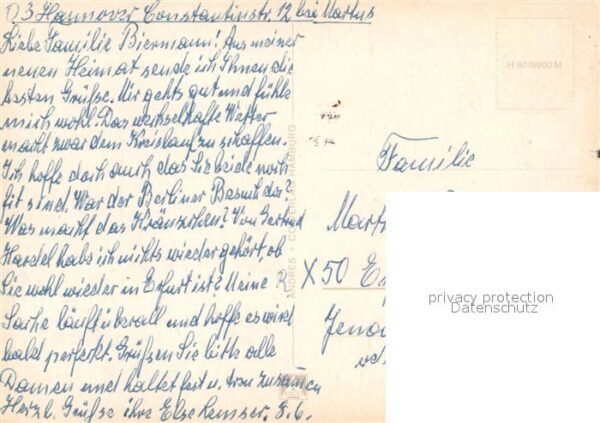 3 Hannover Constantinstr. 12 bei Martus
Liebe Familie Biermann! Aus meiner
neuen Heimat sende ich Ihnen die
besten Grüße. Mir gehts gut und fühle
mich wohl. Das wechselhafte Wetter
macht zwar dem Kreislauf zu schaffen.
Ich hoffe doch auch das Sie beide noch
fit sind. War der Berliner Besuch da?
Was macht das Kränzchen? Von Gertrud
Hardel hab ich nichts wieder gehört, ob
Sie wohl wieder in Erfurt ist? Meine R
Sache läuft überall und hoffe es wird
bald perfekt. Grüßen Sie bitte alle
Damen und haltet fest u. treu zusammen
Herzl. Grüße ihre Else 8. 6.
H 90/8900 M
Familie
Mart
X 50 E
Jena
ANDRES HAMBURG
privacy protection
Datenschutz